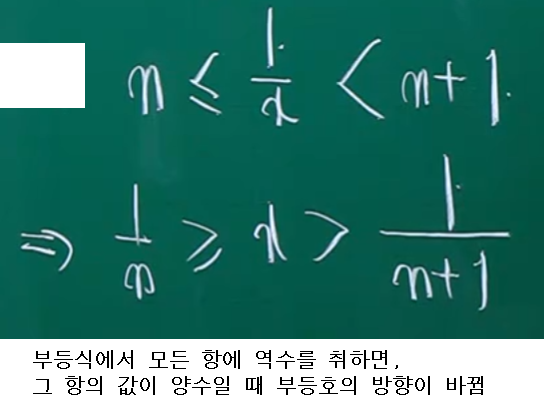 n ≤ 1/x < n+1.
⇒ 1/n ≥ x > 1/(n+1)
부등식에서 모든 항에 역수를 취하면,
그 항의 값이 양수일 때 부등호의 방향이 바뀜